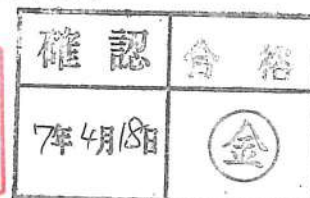 確認 合格
7年4月18日 金